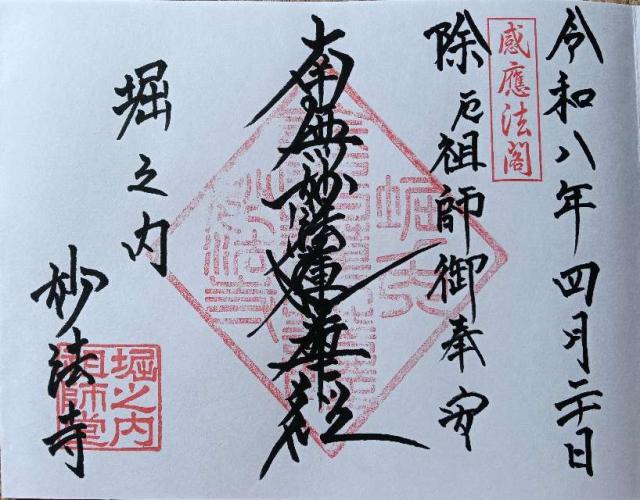 令和八年四月二十日
感應法閣
除厄祖師御奉安
南無妙法蓮華経
堀之内
妙法寺
堀之内
祖師堂